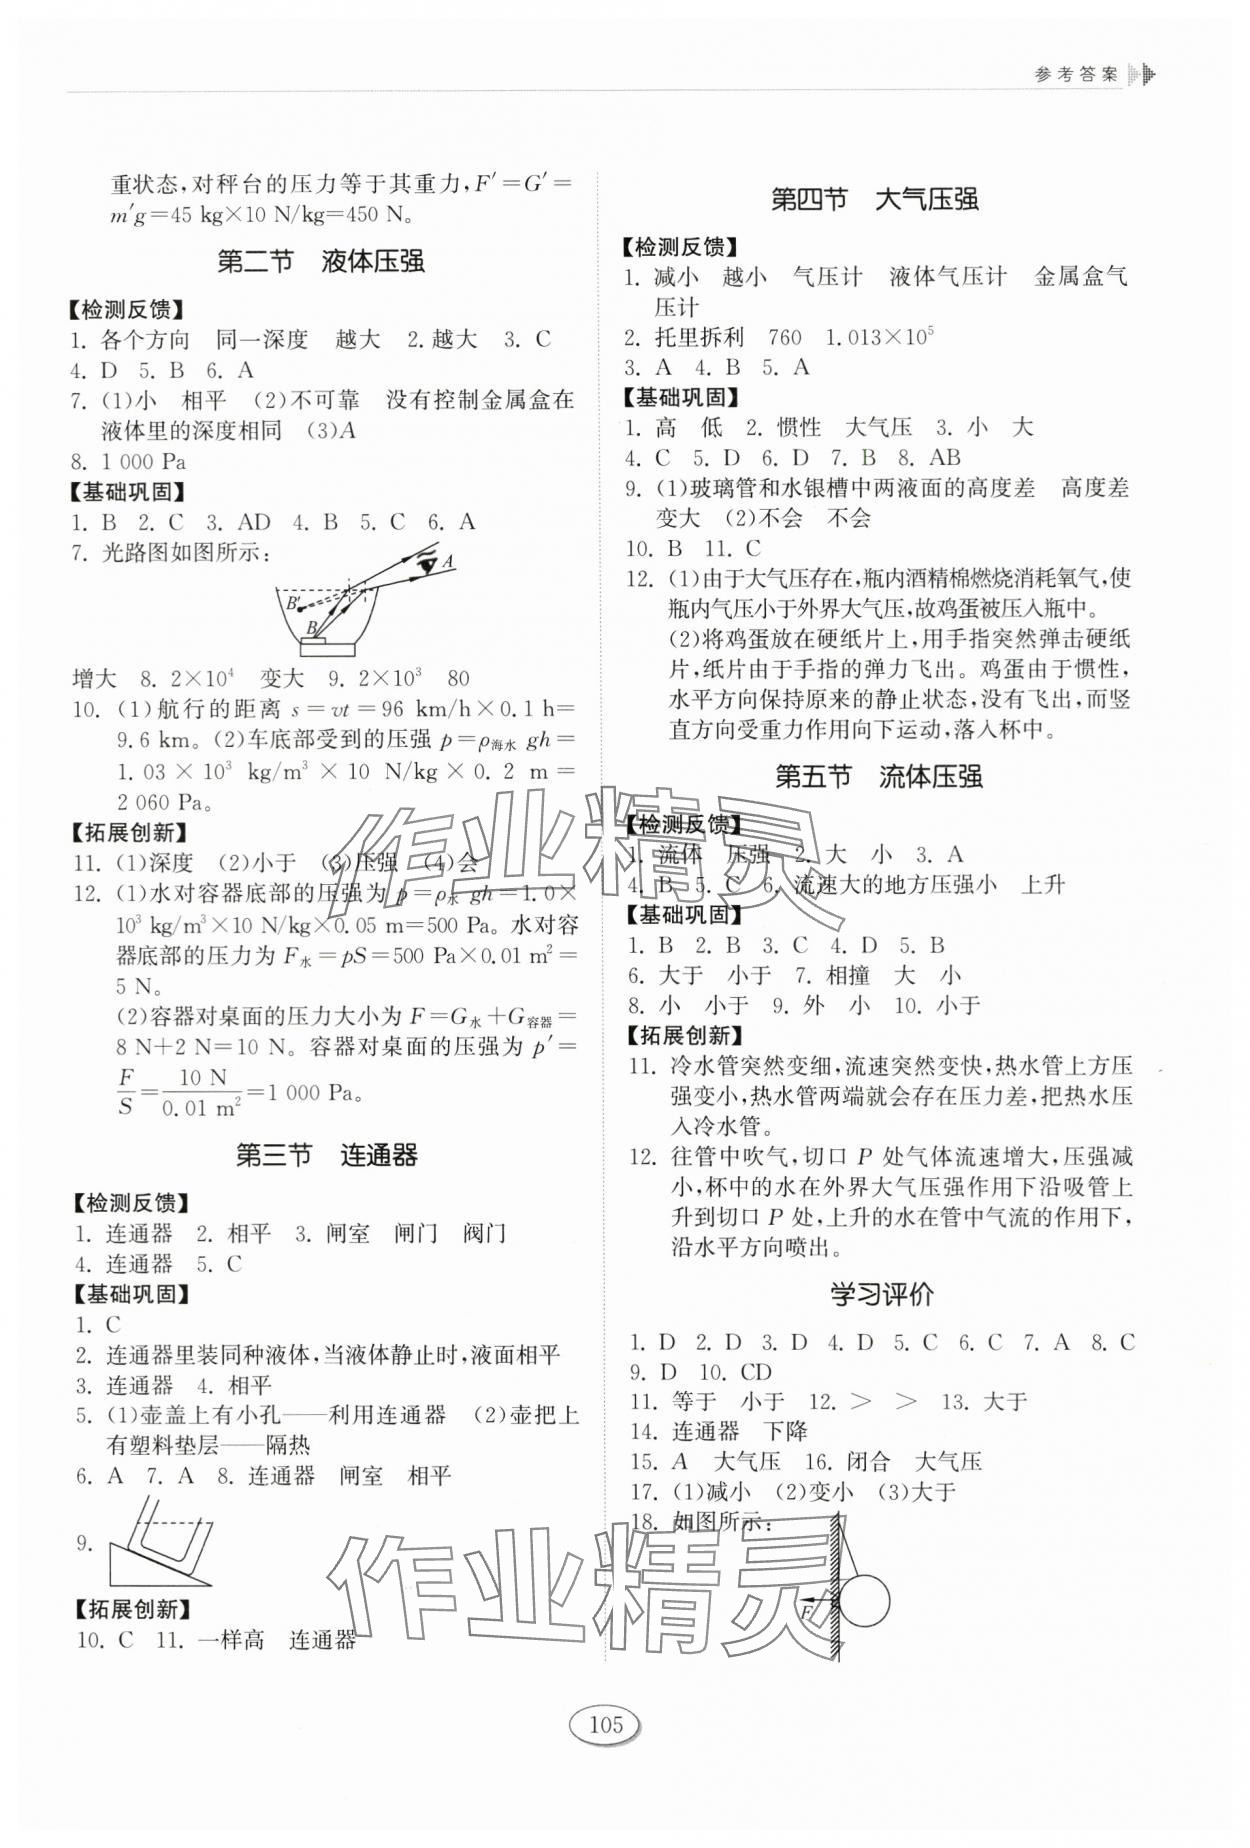 参考答案
重状态,对秤台的压力等于其重力,F′=G′=
m′g=45 kg×10 N/kg=450 N。
第二节 液体压强
【检测反馈】
1. 各个方向 同一深度 越大 2. 越大 3. C
4. D 5. B 6. A
7. (1)小 相平 (2)不可靠 没有控制金属盒在
液体里的深度相同 (3)A
8. 1 000 Pa
【基础巩固】
1. B 2. C 3. AD 4. B 5. C 6. A
7. 光路图如图所示:
A
B′
B
增大 8. 2×10⁴ 变大 9. 2×10³ 80
10. (1)航行的距离 s=vt=96 km/h×0.1 h=
9.6 km。(2)车底部受到的压强 p=ρ海水 gh=
1.03×10³ kg/m³×10 N/kg×0.2 m=
2 060 Pa。
【拓展创新】
11. (1)深度 (2)小于 (3)压强 (4)会
12. (1)水对容器底部的压强为 p=ρ水 gh=1.0×
10³ kg/m³×10 N/kg×0.05 m=500 Pa。水对容
器底部的压力为 F水=pS=500 Pa×0.01 m²=
5 N。
(2)容器对桌面的压力大小为 F=G水+G容器=
8 N+2 N=10 N。容器对桌面的压强为 p′=
F/S=10 N/0.01 m²=1 000 Pa。
第三节 连通器
【检测反馈】
1. 连通器 2. 相平 3. 闸室 闸门 阀门
4. 连通器 5. C
【基础巩固】
1. C
2. 连通器里装同种液体,当液体静止时,液面相平
3. 连通器 4. 相平
5. (1)壶盖上有小孔——利用连通器 (2)壶把上
有塑料垫层——隔热
6. A 7. A 8. 连通器 闸室 相平
9.
【拓展创新】
10. C 11. 一样高 连通器
第四节 大气压强
【检测反馈】
1. 减小 越小 气压计 液体气压计 金属盒气
压计
2. 托里拆利 760 1.013×10⁵
3. A 4. B 5. A
【基础巩固】
1. 高 低 2. 惯性 大气压 3. 小 大
4. C 5. D 6. D 7. B 8. AB
9. (1)玻璃管和水银槽中两液面的高度差 高度差
变大 (2)不会 不会
10. B 11. C
12. (1)由于大气压存在,瓶内酒精棉燃烧消耗氧气,使
瓶内气压小于外界大气压,故鸡蛋被压入瓶中。
(2)将鸡蛋放在硬纸片上,用手指突然弹击硬纸
片,纸片由于手指的弹力飞出。鸡蛋由于惯性,
水平方向保持原来的静止状态,没有飞出,而竖
直方向受重力作用向下运动,落入杯中。
第五节 流体压强
【检测反馈】
1. 流体 压强 2. 大 小 3. A
4. B 5. C 6. 流速大的地方压强小 上升
【基础巩固】
1. B 2. B 3. C 4. D 5. B
6. 大于 小于 7. 相撞 大 小
8. 小 小于 9. 外 小 10. 小于
【拓展创新】
11. 冷水管突然变细,流速突然变快,热水管上方压
强变小,热水管两端就会存在压力差,把热水压
入冷水管。
12. 往管中吹气,切口 P 处气体流速增大,压强减
小,杯中的水在外界大气压强作用下沿吸管上
升到切口 P 处,上升的水在管中气流的作用下,
沿水平方向喷出。
学习评价
1. D 2. D 3. D 4. D 5. C 6. C 7. A 8. C
9. D 10. CD
11. 等于 小于 12. > > 13. 大于
14. 连通器 下降
15. A 大气压 16. 闭合 大气压
17. (1)减小 (2)变小 (3)大于
18. 如图所示:
F
作业精灵
作业精灵
105